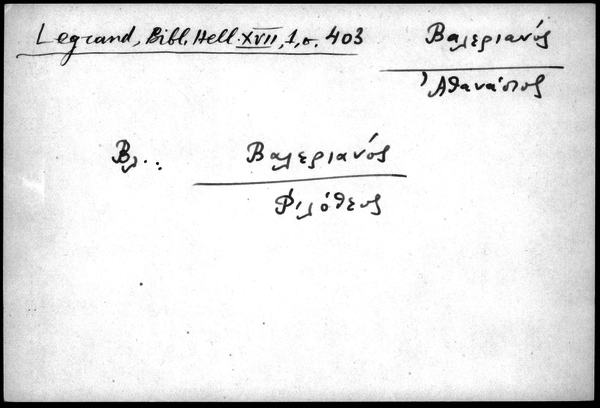 Legrand, Bibl. Hell. XVII, 1, σ. 403
Βαλεριανός
Ἀθανάσιος
Βλ..:
Βαλεριανός
Φιλόθεος